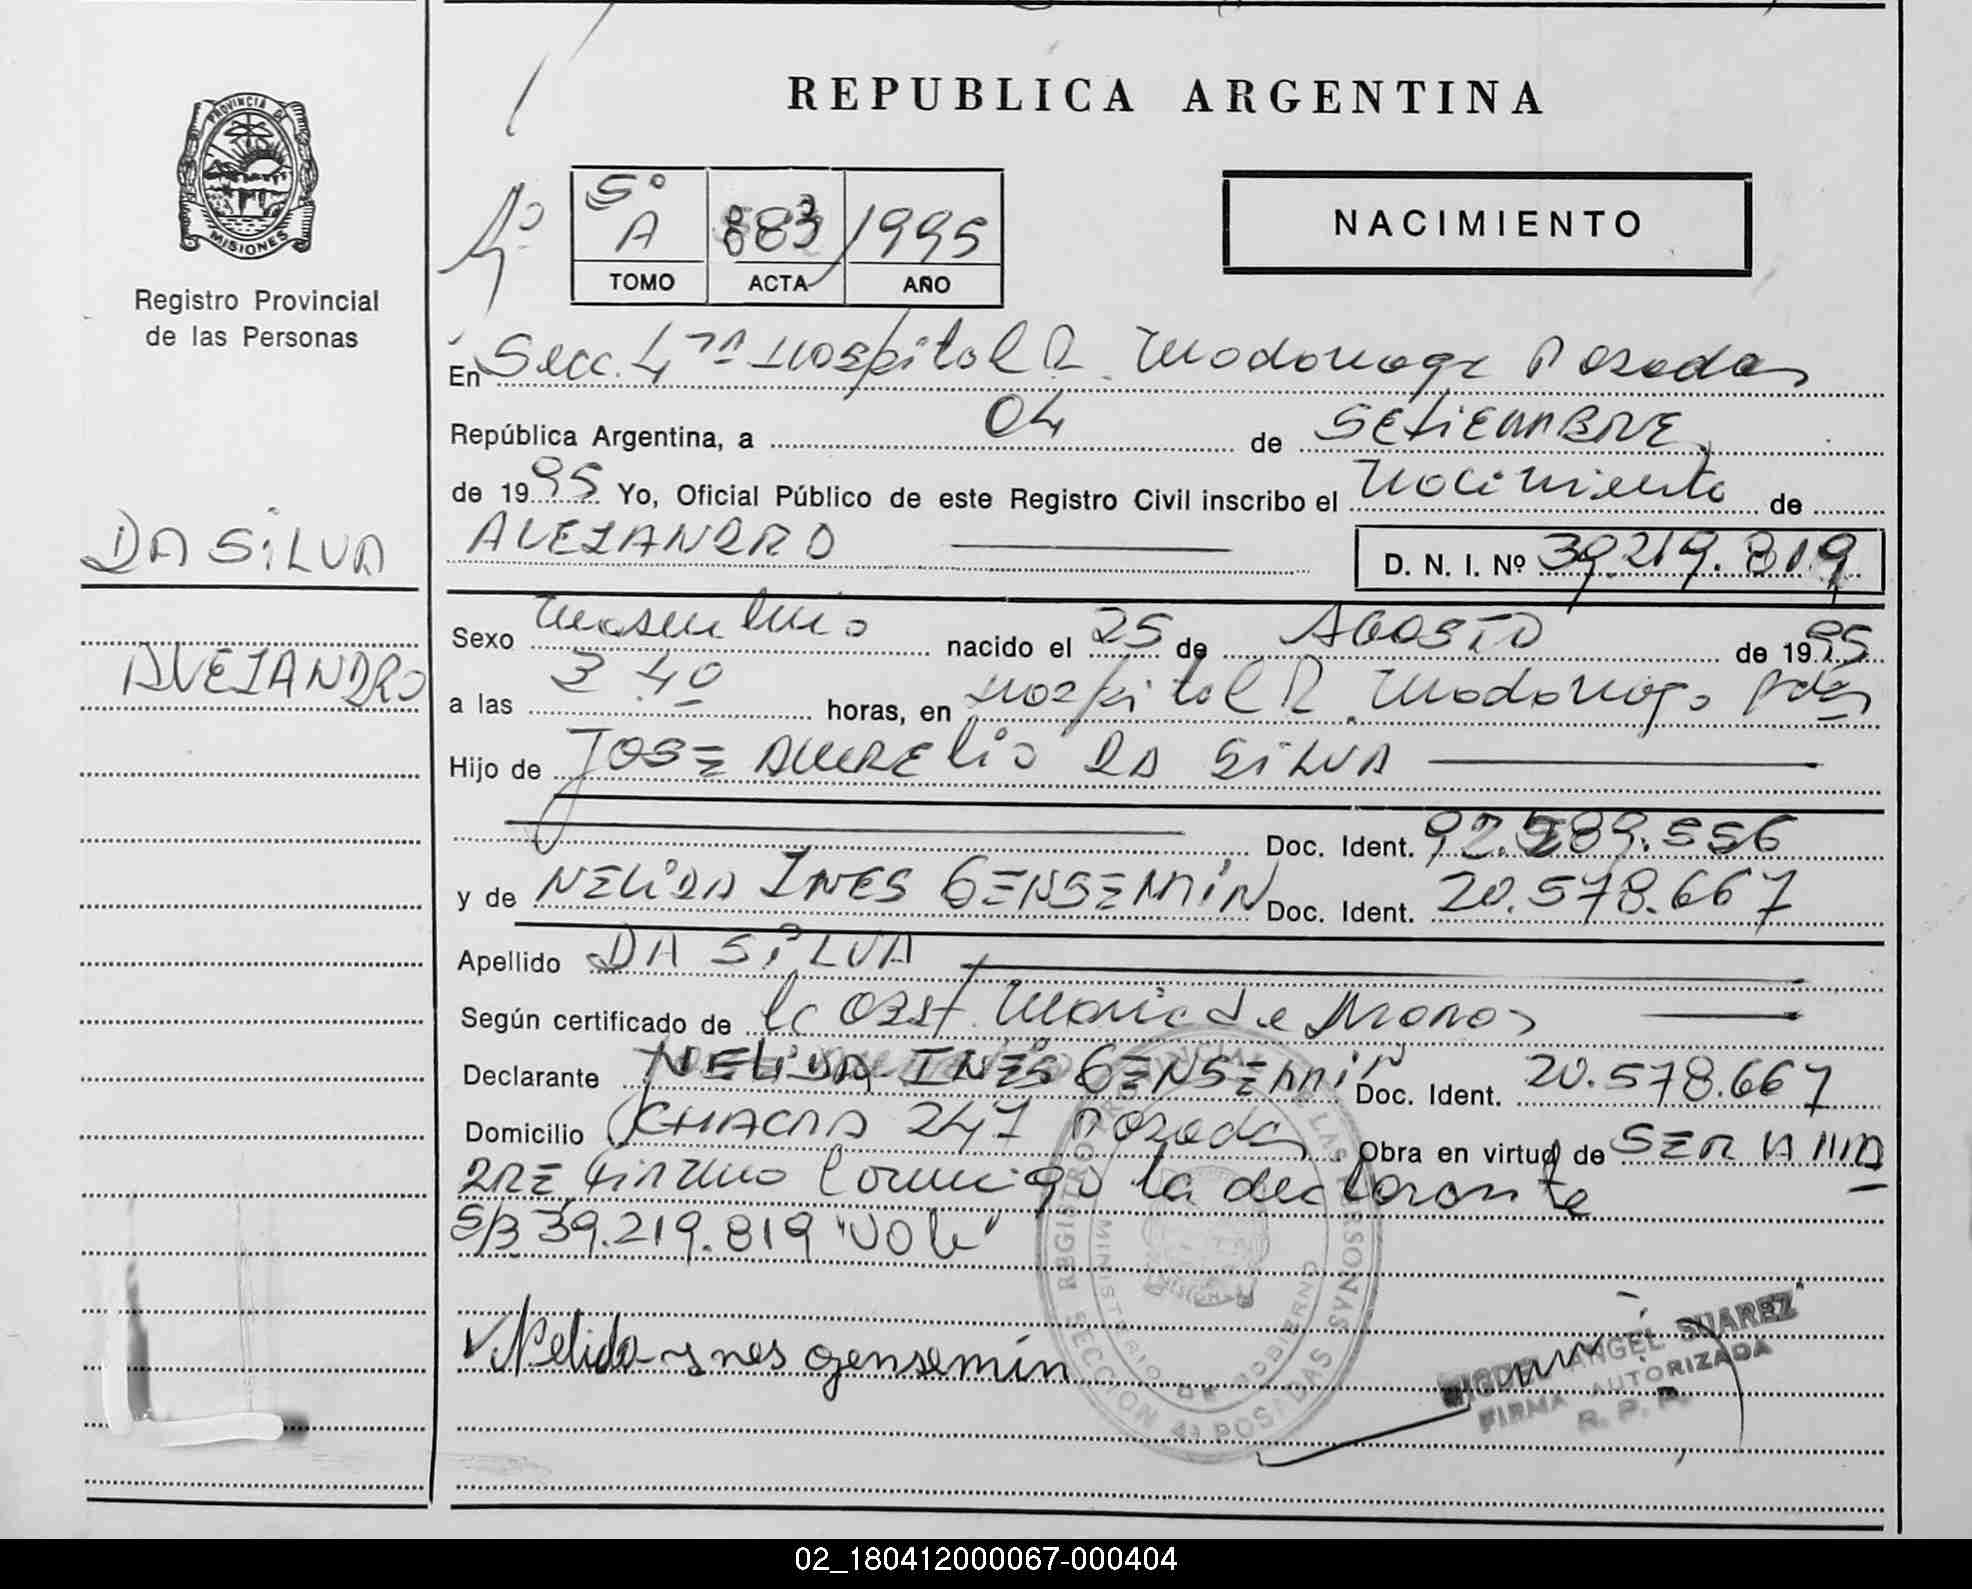 PROVINCIA DE
MISIONES
Registro Provincial
de las Personas
DA SILVA
ALEJANDRO
REPUBLICA ARGENTINA
NACIMIENTO
5º
A 883 1995
TOMO ACTA AÑO
En Secc. 4ta Hospital R. Madariaga Posadas
República Argentina, a 04 de SETIEMBRE
de 1995 Yo, Oficial Público de este Registro Civil inscribo el Nacimiento de
ALEJANDRO D. N. I. Nº 39.219.819
Sexo masculino nacido el 25 de AGOSTO de 1995
a las 3 40 horas, en Hospital R. Madariaga Pdas
Hijo de JOSE AURELIO DA SILVA
Doc. Ident. 92.589.556
y de NELIDA INES GENSEMIN Doc. Ident. 20.578.667
Apellido DA SILVA
Según certificado de la Obst. Maria de
Declarante NELIDA INES GENSEMIN Doc. Ident. 20.578.667
Domicilio CHACRA 247 Posadas Obra en virtud de SER LA MA
DRE firmando conmigo la declarante
S/B 39.219.819 "Vale"
Nelida ynes gensemin
REGISTRO PROVINCIAL DE LAS PERSONAS
MINISTERIO DE GOBIERNO
SECCION 4ª POSADAS
MIGUEL ANGEL SUAREZ
FIRMA AUTORIZADA
R. P. P.
02_180412000067-000404